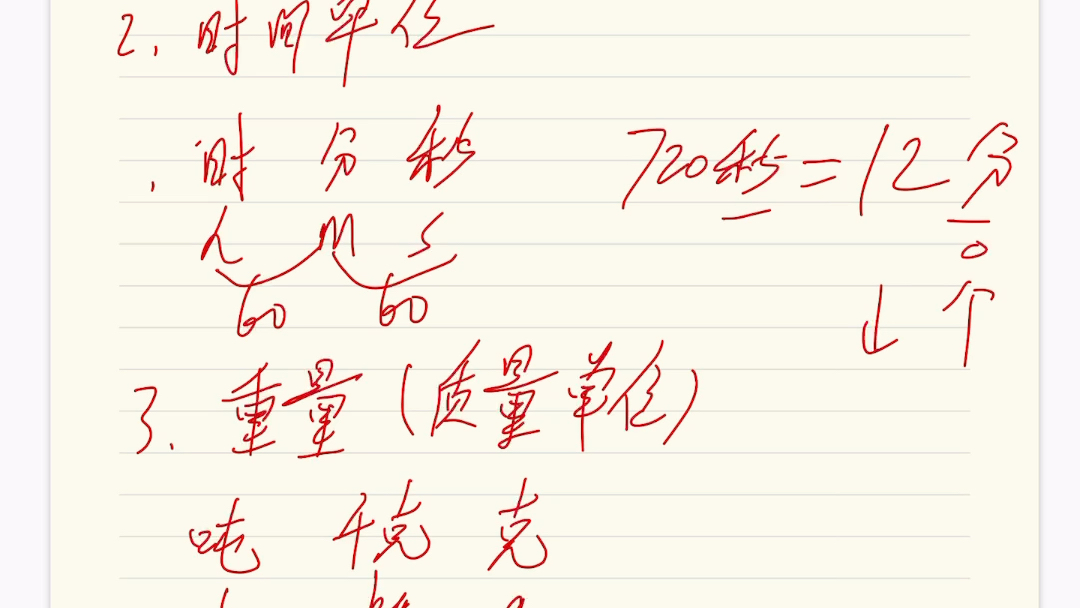 2. 时间单位
时 分 秒 720秒=12分
h m s 0
60 60 ↓ 个
3. 重量(质量单位)
吨 千克 克